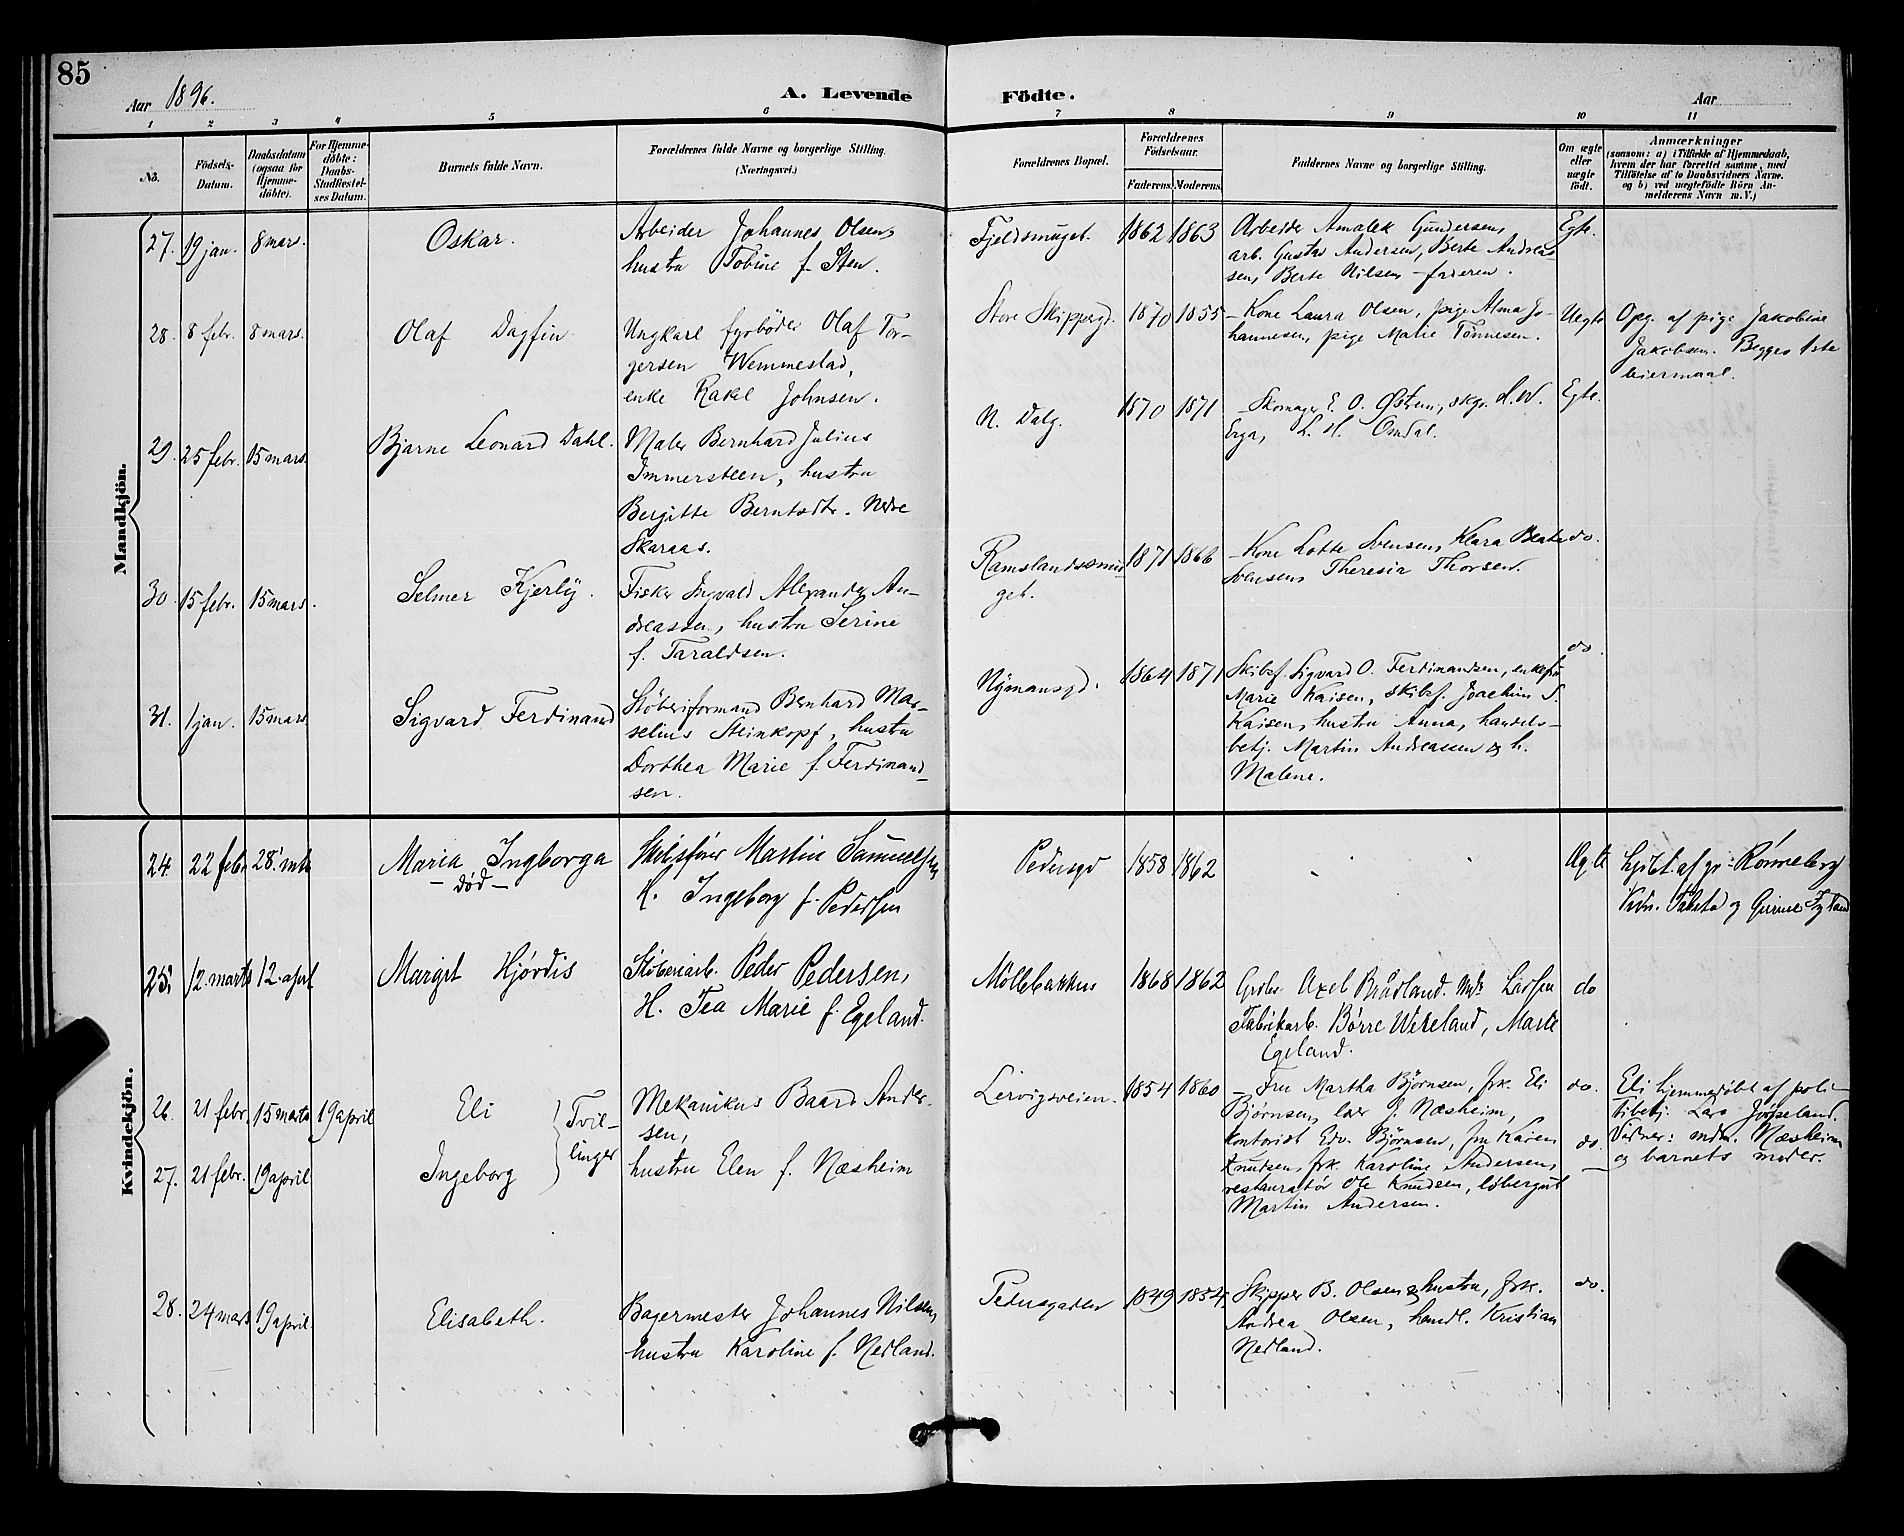 85
Aar 1896.
A. Levende Födte.
Aar
1 2 3 4 5 6 7 8 9 10 11
No.
Födsels-Datum.
Daabsdatum (ogsaa for Hjemme-döbte).
For Hjemme-döbte: Daabs-Stadfæstel-ses Datum.
Barnets fulde Navn.
Forældrenes fulde Navne og borgerlige Stilling. (Næringsvei.)
Forældrenes Bopæl.
Forældrenes Födselsaar.
Faderens. Moderens.
Faddernes Navne og borgerlige Stilling.
Om ægte eller uægte födt.
Anmærkninger
(saasom: a) i Tilfælde af Hjemmedaab, hvem der har forrettet samme, med Tilföielse af to Daabsvidners Navne. og b) ved uægtefödte Börn An-melderens Navn m. V.)
Mandkjön.
27. 19 jan. 8 mars. Oskar.
Arbeider Johannes Olsen,
hustru Tobine f. Sten.
Fjeldsmuget. 1862 1863
Arbeider Amalek Gundersen,
arb. Gustav Andersen, Berte Andreas-
sen, Berte Nilsen - faderen.
Egte.
28. 8 febr. 8 mars. Olaf Dagfin
Ungkarl fyrböder Olaf Tor-
gersen Wemmestad,
enke Rakel Johnsen.
Store Skipperg. 1870 1855
- Kone Laura Olsen, pige Alma Jo-
hannesen, pige Malie Tönnesen.
Uegte
Opg. af pige Jakobine
Jakobsen. Begges 1ste
leiermaal.
29. 25 febr. 15 mars. Bjarne Leonard Dahl.
Maler Bernhard Julius
Immersteen, hustru
Bergitte Berntsdtr. Nedre
Skaraas.
N. Dalg. 1870 1871
- Skomager E. O. Østrem, skgr. H. W.
Erga, L. H. Omdal.
Egte.
30. 15 febr. 15 mars. Selmer Kjerly.
Fisker Ingvald Alexander An-
dreassen, hustru Serine
f. Taraldsen.
Ramslandssmu-
get.
1871 1866
- Kone Lotte Svensen, Klara Beate
Svensen, Theresia Thorsen.
do.
31. 1 jan. 15 mars Sigvard Ferdinand
Støberiformand Bernhard Mar-
selius Steinkopf, hustru
Dorthea Marie f. Ferdinand-
sen.
Nymansgd. 1864 1871
Skibsf. Sigvard O. Ferdinandsen, enkefru
Marie Kaisen, skibsf. Joachim S.
Kaisen, hustru Anna, handels-
betj. Martin Andreassen og h.
Malene.
do.
Kvindekjön.
24. 22 febr 28. mts Maria Ingborga
- død -
Skibsfører Martin Samuelsen
H. Ingeborg f. Pedersen
Pedersgd 1858 1862
Ægte
hjdbt. af gr: Rönneberg
25. 12. marts 12. april Margit Hjørdis
Støberiarb. Peder Pedersen,
H. Tea Marie f. Egeland.
Möllebakken 1868 1862
Axel Brådland. Larsen
Fabrikarb. Børre Weteland, Marte
Egeland.
do
26. 21 febr. 15 marts 19 april Eli
27. 21 febr. 19 april Ingeborg
Tvil-
linger
Mekanikus Baard Ander-
sen,
hustru Elen f. Næsheim
Lervigsveien. 1854 1860
- Fru Martha Bjørnsen, frk. Eli
Bjørnsen, lær. J. Næsheim,
kontorist Edv. Bjørnsen, fru Karen
Knutsen, frk. Karoline Andersen,
restauratør Ole Knudsen, løbergut
Martin Andersen.
do.
do.
Eli hjemmedøbt af poli-
tibetj. Lars Jøsseland.
Vidner: mdm. Næsheim
og barnets moder.
28. 24 mars 19 april. Elisabeth.
Bagermester Johannes Nilsen,
hustru Karoline f. Nedland.
Pedersgaden 1849 1854.
Skipper B. Olsen & hustru, frk.
Andrea Olsen, handl. Kristian
Nedland.
do.